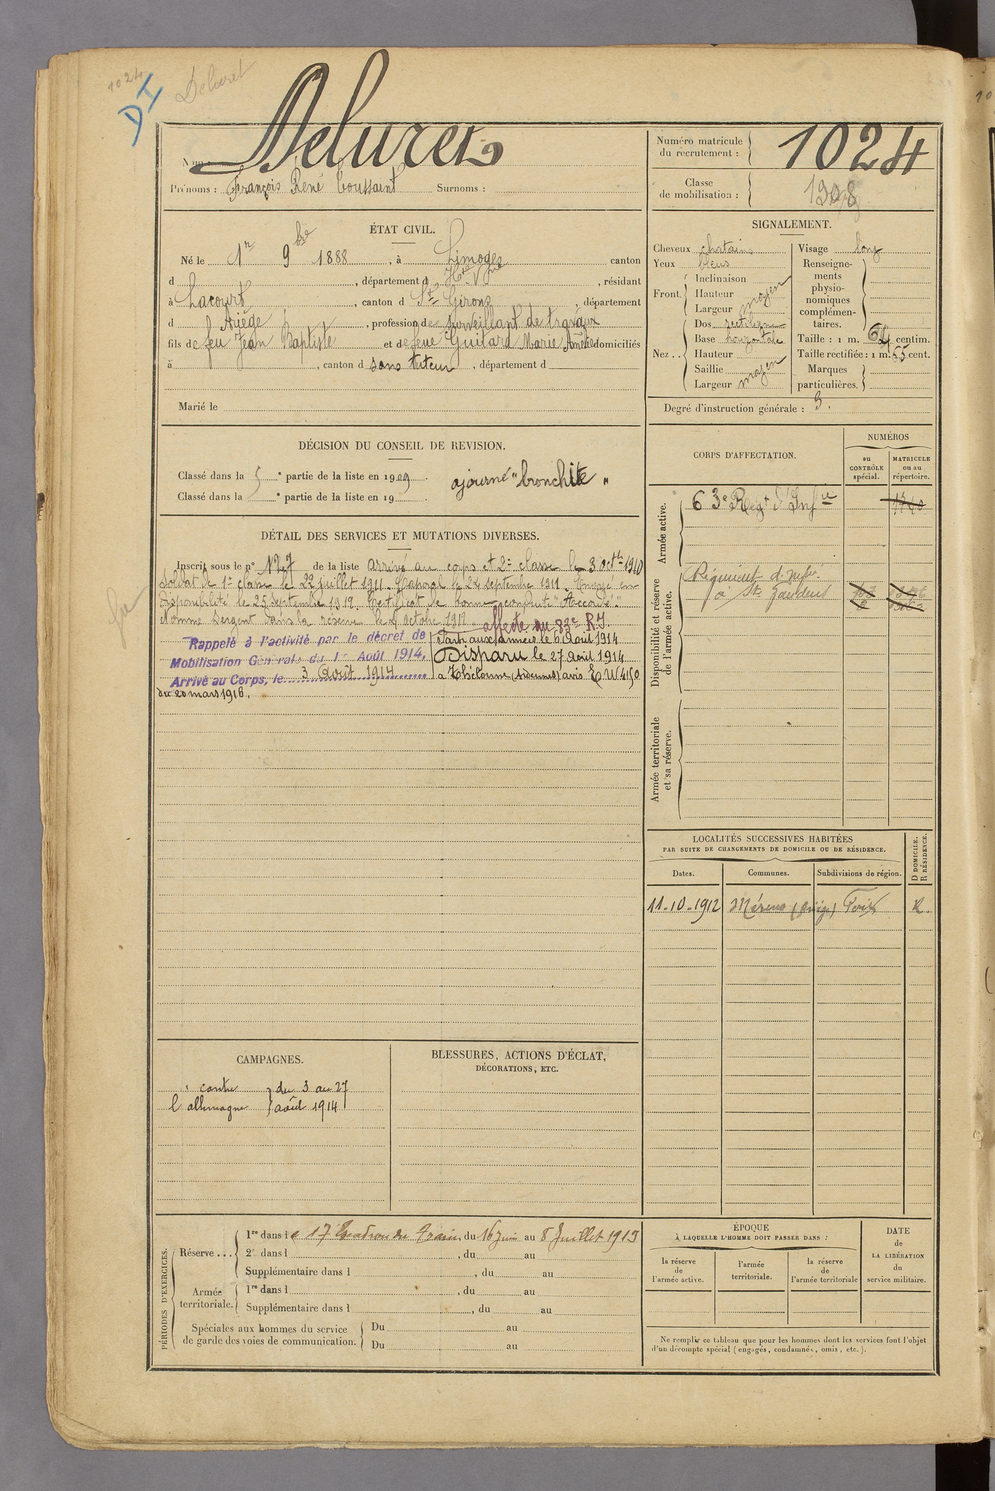 1024
DI
Delurel
Nom : Deluret
Numéro matricule du recrutement : 1024
Prénoms : François René Toussaint Surnoms :
Classe de mobilisation : 1908
ÉTAT CIVIL.
Né le 1er 9bre 1888, à Limoges canton
d , département d Hte Vne, résidant
à Lacourt, canton d St Girons, département
d Ariège, profession de surveillant de travaux
fils de feu Jean Baptiste et de feue Guitard Marie Amélie domiciliés
à , canton d sans tuteur, département d
Marié le
SIGNALEMENT.
Cheveux chatains
Yeux bleus
Front. Inclinaison
Hauteur
Largeur moyen
Nez. . Dos rectiligne
Base horizontale
Hauteur
Saillie
Largeur moyen
Visage long
Renseignements physionomiques complémentaires.
Taille : 1 m. 64 centim.
Taille rectifiée : 1 m. 65 cent.
Marques particulières.
Degré d'instruction générale : 3.
DÉCISION DU CONSEIL DE REVISION.
Classé dans la 5e partie de la liste en 1909. ajourné "bronchite"
Classé dans la e partie de la liste en 19
CORPS D'AFFECTATION.
NUMÉROS
au CONTRÔLE spécial.
MATRICULE ou au répertoire.
Armée active.
63e Régt d'Infie
Disponibilité et réserve de l'armée active.
Régiment d'infie
à St Gaudens
Armée territoriale et sa réserve.
DÉTAIL DES SERVICES ET MUTATIONS DIVERSES.
Inscrit sous le n° 127 de la liste arrivé au corps et 2e classe le 3 octbre 1910
Soldat de 1re classe le 22 juillet 1911. Caporal le 24 septembre 1911. Envoyé en
disponibilité le 25 septembre 1912. Certificat de bonne conduite "Accordé".
Nommé Sergent dans la réserve le octobre 1912 affecté au 83e RI
Rappelé à l'activité par le décret de
Mobilisation Générale du 1er Août 1914,
Arrivé au Corps, le 3 Août 1914
Parti aux armées le 6 Août 1914
Disparu le 27 Août 1914
à Thelonne (Ardennes) avis E W 4150
du 20 mars 1918.
LOCALITÉS SUCCESSIVES HABITÉES
PAR SUITE DE CHANGEMENTS DE DOMICILE OU DE RÉSIDENCE.
Dates.
Communes.
Subdivisions de région.
D DOMICILE. R RÉSIDENCE.
11-10-1912 Mérens (Ariège) Foix R.
CAMPAGNES.
contre
l'allemagne
du 3 au 27
août 1914
BLESSURES, ACTIONS D'ÉCLAT,
DÉCORATIONS, ETC.
PÉRIODES D'EXERCICES.
Réserve . . .
1re dans le 17e Escadron du Train du 16 juin au 8 Juillet 1913
2e dans l , du au
Supplémentaire dans l , du au
Armée territoriale.
1re dans l , du au
Supplémentaire dans l , du au
Spéciales aux hommes du service de garde des voies de communication.
Du au
Du au
ÉPOQUE
À LAQUELLE L'HOMME DOIT PASSER DANS :
la réserve de l'armée active.
l'armée territoriale.
la réserve de l'armée territoriale
DATE de LA LIBÉRATION du service militaire.
Ne remplir ce tableau que pour les hommes dont les services font l'objet
d'un décompte spécial (engagés, condamnés, omis, etc.).